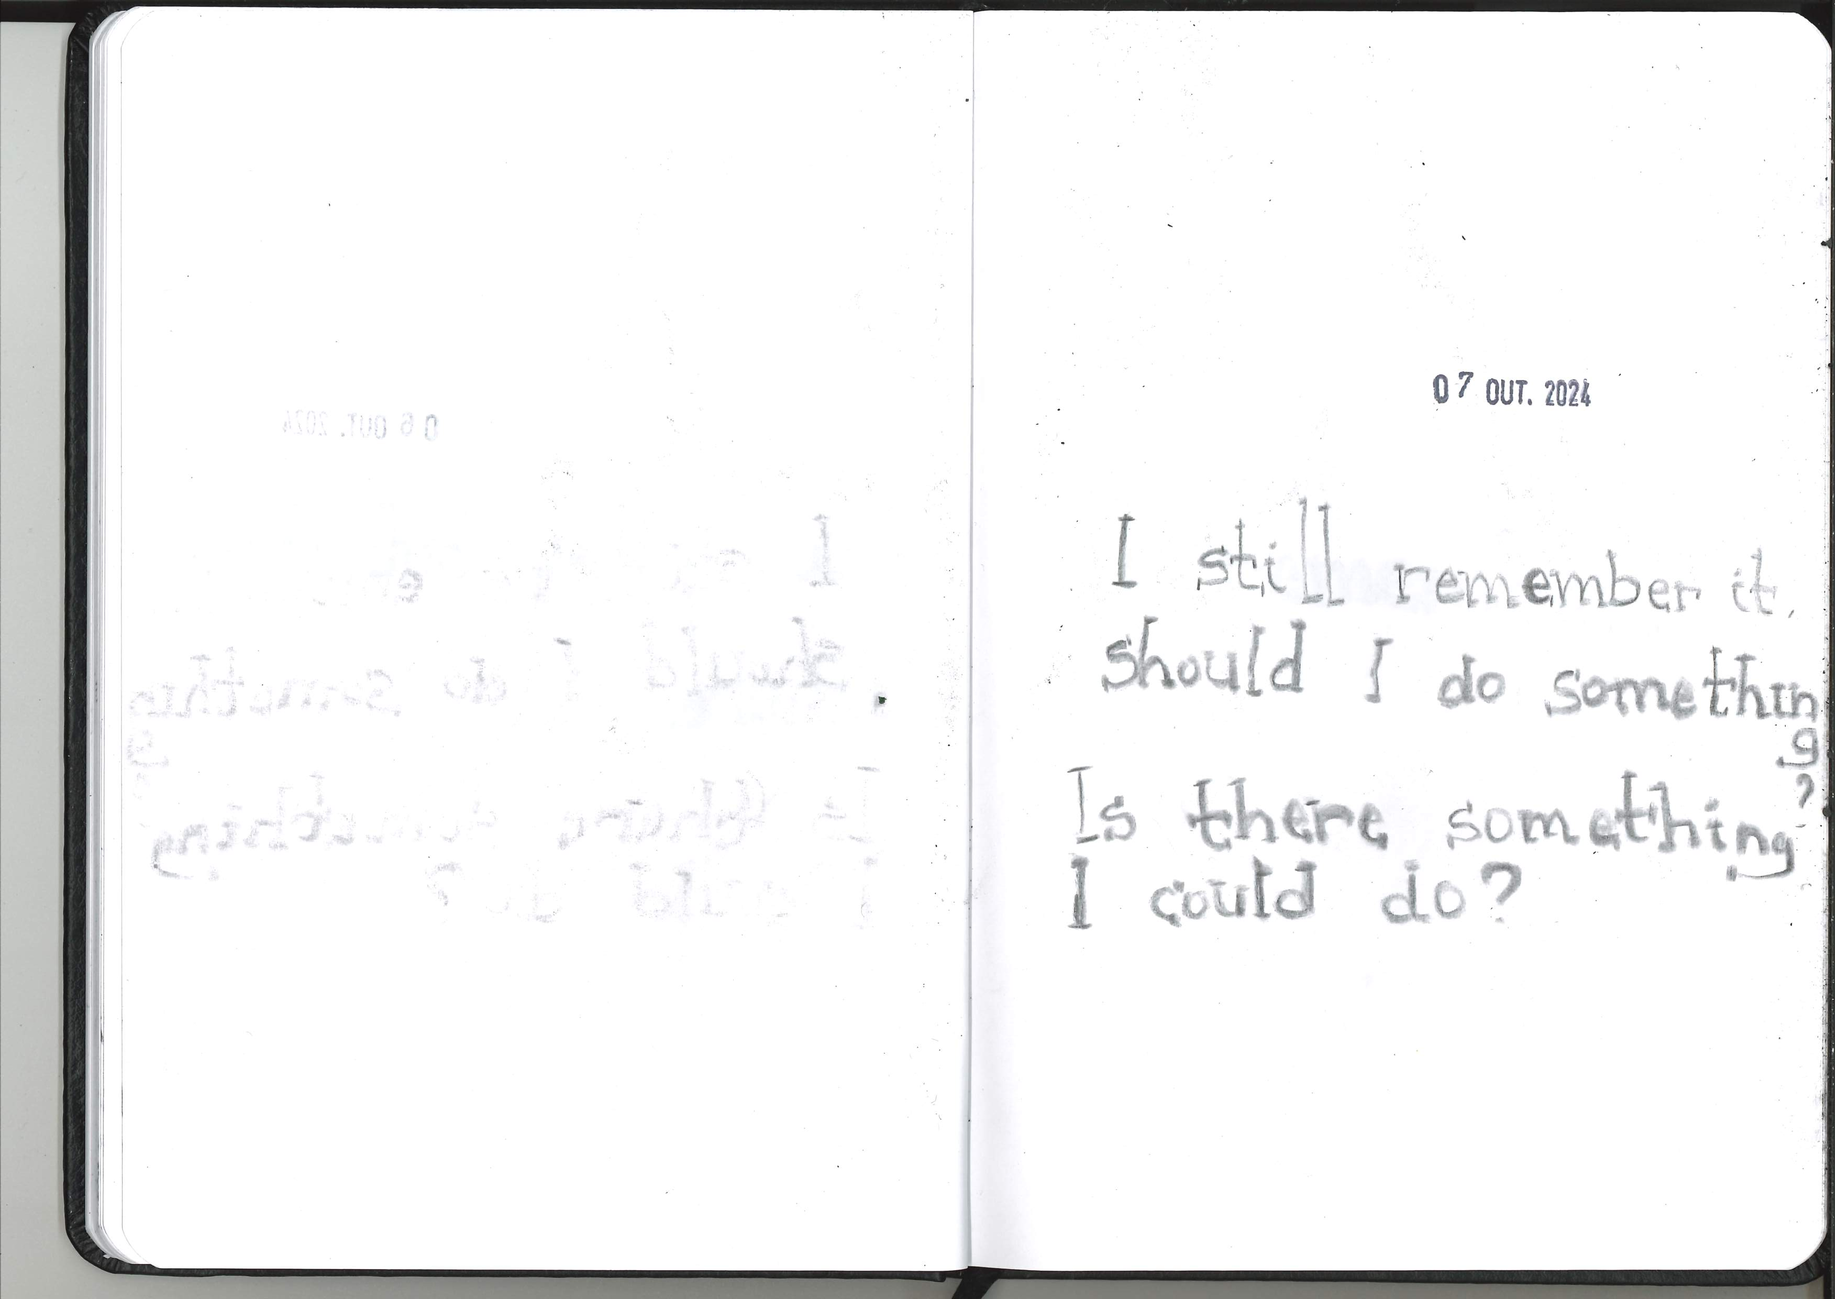 06 OUT. 2024
07 OUT. 2024
I still remember it.
should I do somethin
g
?
Is there something
I could do?